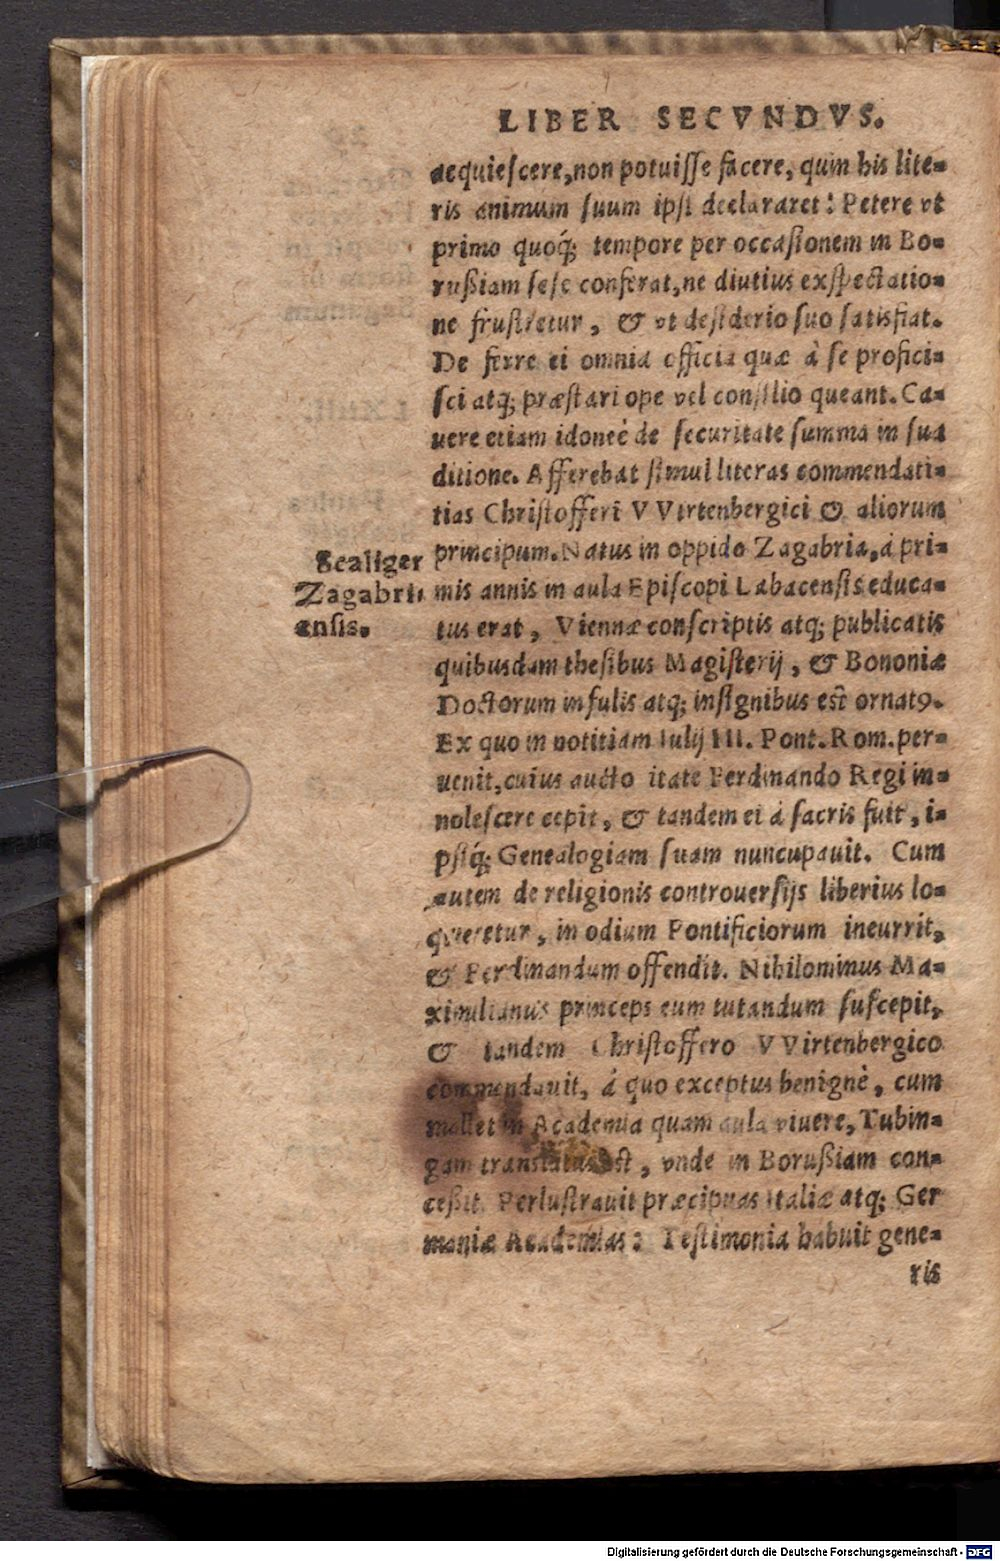 LIBER SECVNDVS.
acquiescere, non potuisse facere, quin his lite=
ris animum suum ipsi declararet: Petere vt
primo quoq́; tempore per occasionem in Bo=
rußiam sese conferat, ne diutius exspectatio=
ne frustretur, & vt desiderio suo satisfiat.
De ferre ei omnia officia quæ à se profici=
sci atq; præstari ope vel consilio queant. Ca=
uere etiam idoneè de securitate summa in sua
ditione. Afferebat simul literas commendati=
tias Christofferi VVirtenbergici & aliorum
principum. Natus in oppido Zagabria, á pri=
mis annis in aula Episcopi Labacensis educa=
tus erat, Viennæ conscriptis atq; publicatis
quibusdam thesibus Magisterij, & Bononiæ
Doctorum infulis atq; insignibus est ornat9.
Ex quo in notitiam Iulij III. Pont. Rom. per=
uenit, cuius aucto itate Ferdinando Regi in=
nolescere cepit, & tandem ei á sacris fuit, i=
psiq́; Genealogiam suam nuncupauit. Cum
autem de religionis controuersijs liberius lo=
queretur, in odium Pontificiorum incurrit,
& Ferdinandum offendit. Nihilominus Ma=
ximilianus princeps eum tutandum suscepit,
& tandem Christoffero VVirtenbergico
commendauit, á quo exceptus benignè, cum
mallet in Academia quam aula viuere, Tubin=
gam translatus est, vnde in Borußiam con=
ceßit. Perlustrauit præcipuas Italiæ atq; Ger
maniæ Academias: Testimonia habuit gene=
ris
Scaliger
Zagabri=
ensis.
Digitalisierung gefördert durch die Deutsche Forschungsgemeinschaft - DFG